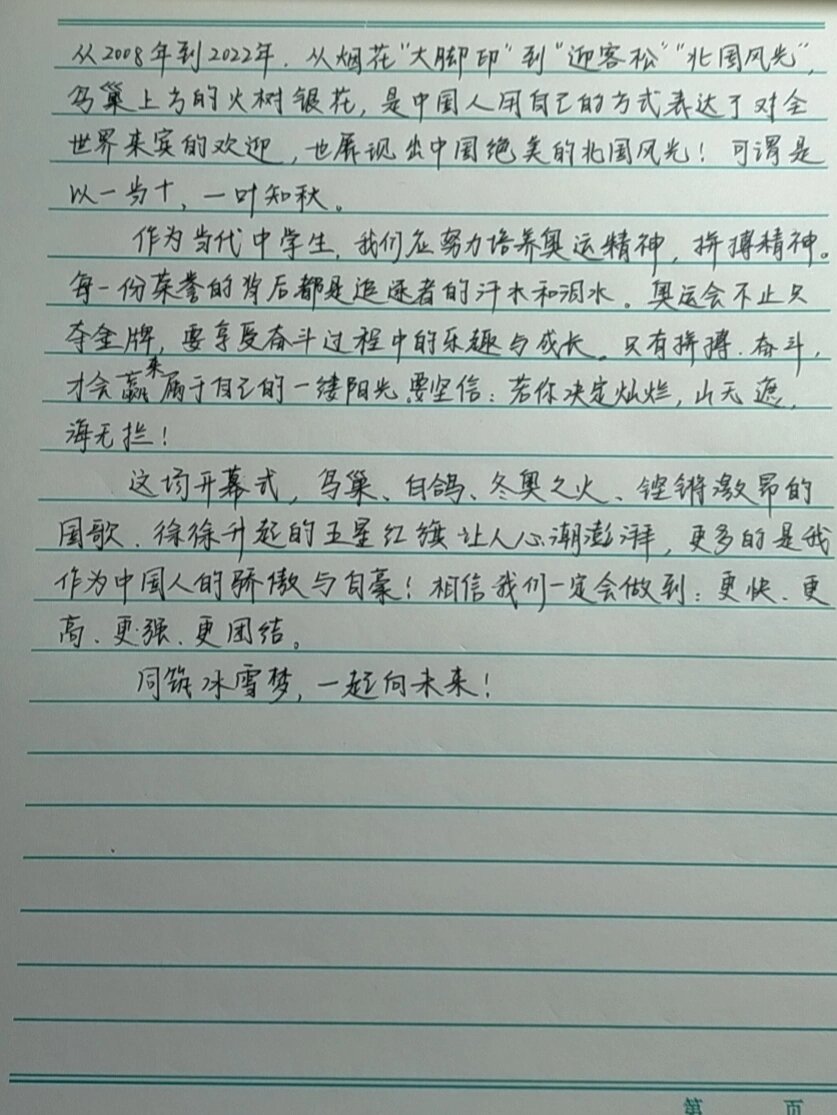 从2008年到2022年．从烟花“大脚印”到“迎客松”“北国风光”，
鸟巢上方的火树银花，是中国人用自己的方式表达了对全
世界来宾的欢迎，也展现出中国绝美的北国风光！可谓是
以一当十，一叶知秋。
作为当代中学生，我们应努力培养奥运精神，拼搏精神。
每一份荣誉的背后都是追逐者的汗水和泪水。奥运会不止只
夺金牌，要享受奋斗过程中的乐趣与成长。只有拼搏．奋斗，
才会赢来属于自己的一缕阳光．要坚信：若你决定灿烂，山无遮，
海无拦！
这场开幕式，鸟巢、白鸽、冬奥之火、铿锵激昂的
国歌、徐徐升起的五星红旗让人心潮澎湃，更多的是我
作为中国人的骄傲与自豪！相信我们一定会做到：更快、更
高、更强、更团结。
同筑冰雪梦，一起向未来！
第 页